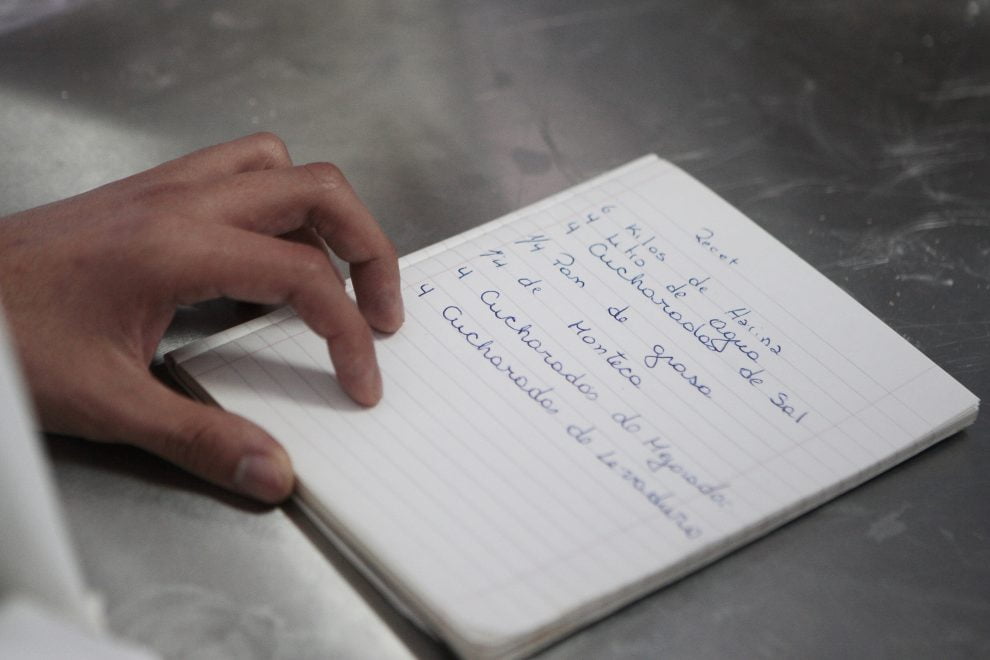 Recet
6 Kilos de Harina
4 Litro de agua
4 Cucharadas de Sal
1/4 Pan de grasa
1/4 de Manteca
4 Cucharadas de Mejorador
4 Cucharadas de Levadura